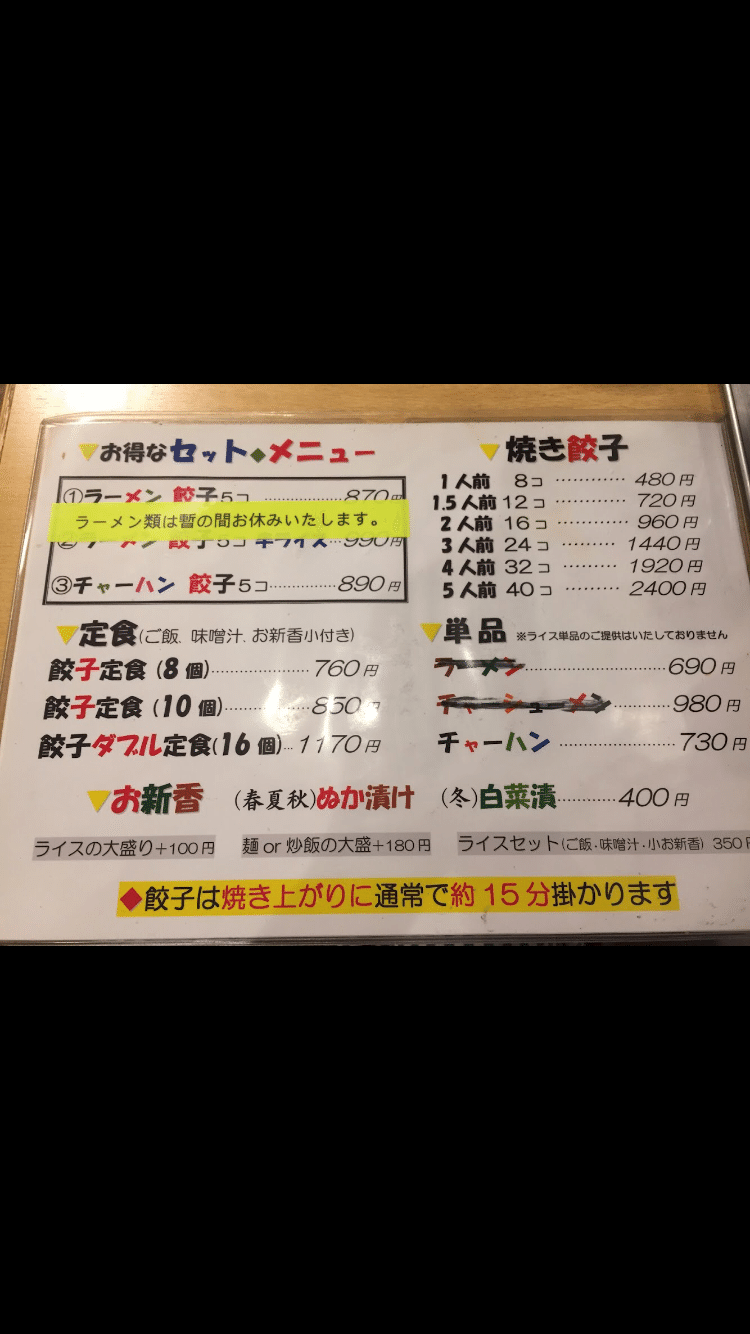 ▼お得なセット◆メニュー
①ラーメン 餃子5コ ……………870円
ラーメン類は暫の間お休みいたします。
②ラーメン 餃子5コ 半ライス…990円
③チャーハン 餃子5コ……………890円
▼定食(ご飯、味噌汁、お新香小付き)
餃子定食(8個)……………760円
餃子定食(10個)……………850円
餃子ダブル定食(16個)…1170円
▼焼き餃子
1人前 8コ …………480円
1.5人前 12コ …………720円
2人前 16コ …………960円
3人前 24コ ………1440円
4人前 32コ ………1920円
5人前 40コ ………2400円
▼単品 ※ライス単品のご提供はいたしておりません
ラーメン……………………690円
チャーシューメン…………980円
チャーハン……………………730円
▼お新香 (春夏秋)ぬか漬け (冬)白菜漬…………400円
ライスの大盛り+100円 麺or炒飯の大盛+180円 ライスセット(ご飯・味噌汁・小お新香) 350円
◆餃子は焼き上がりに通常で約15分掛かります